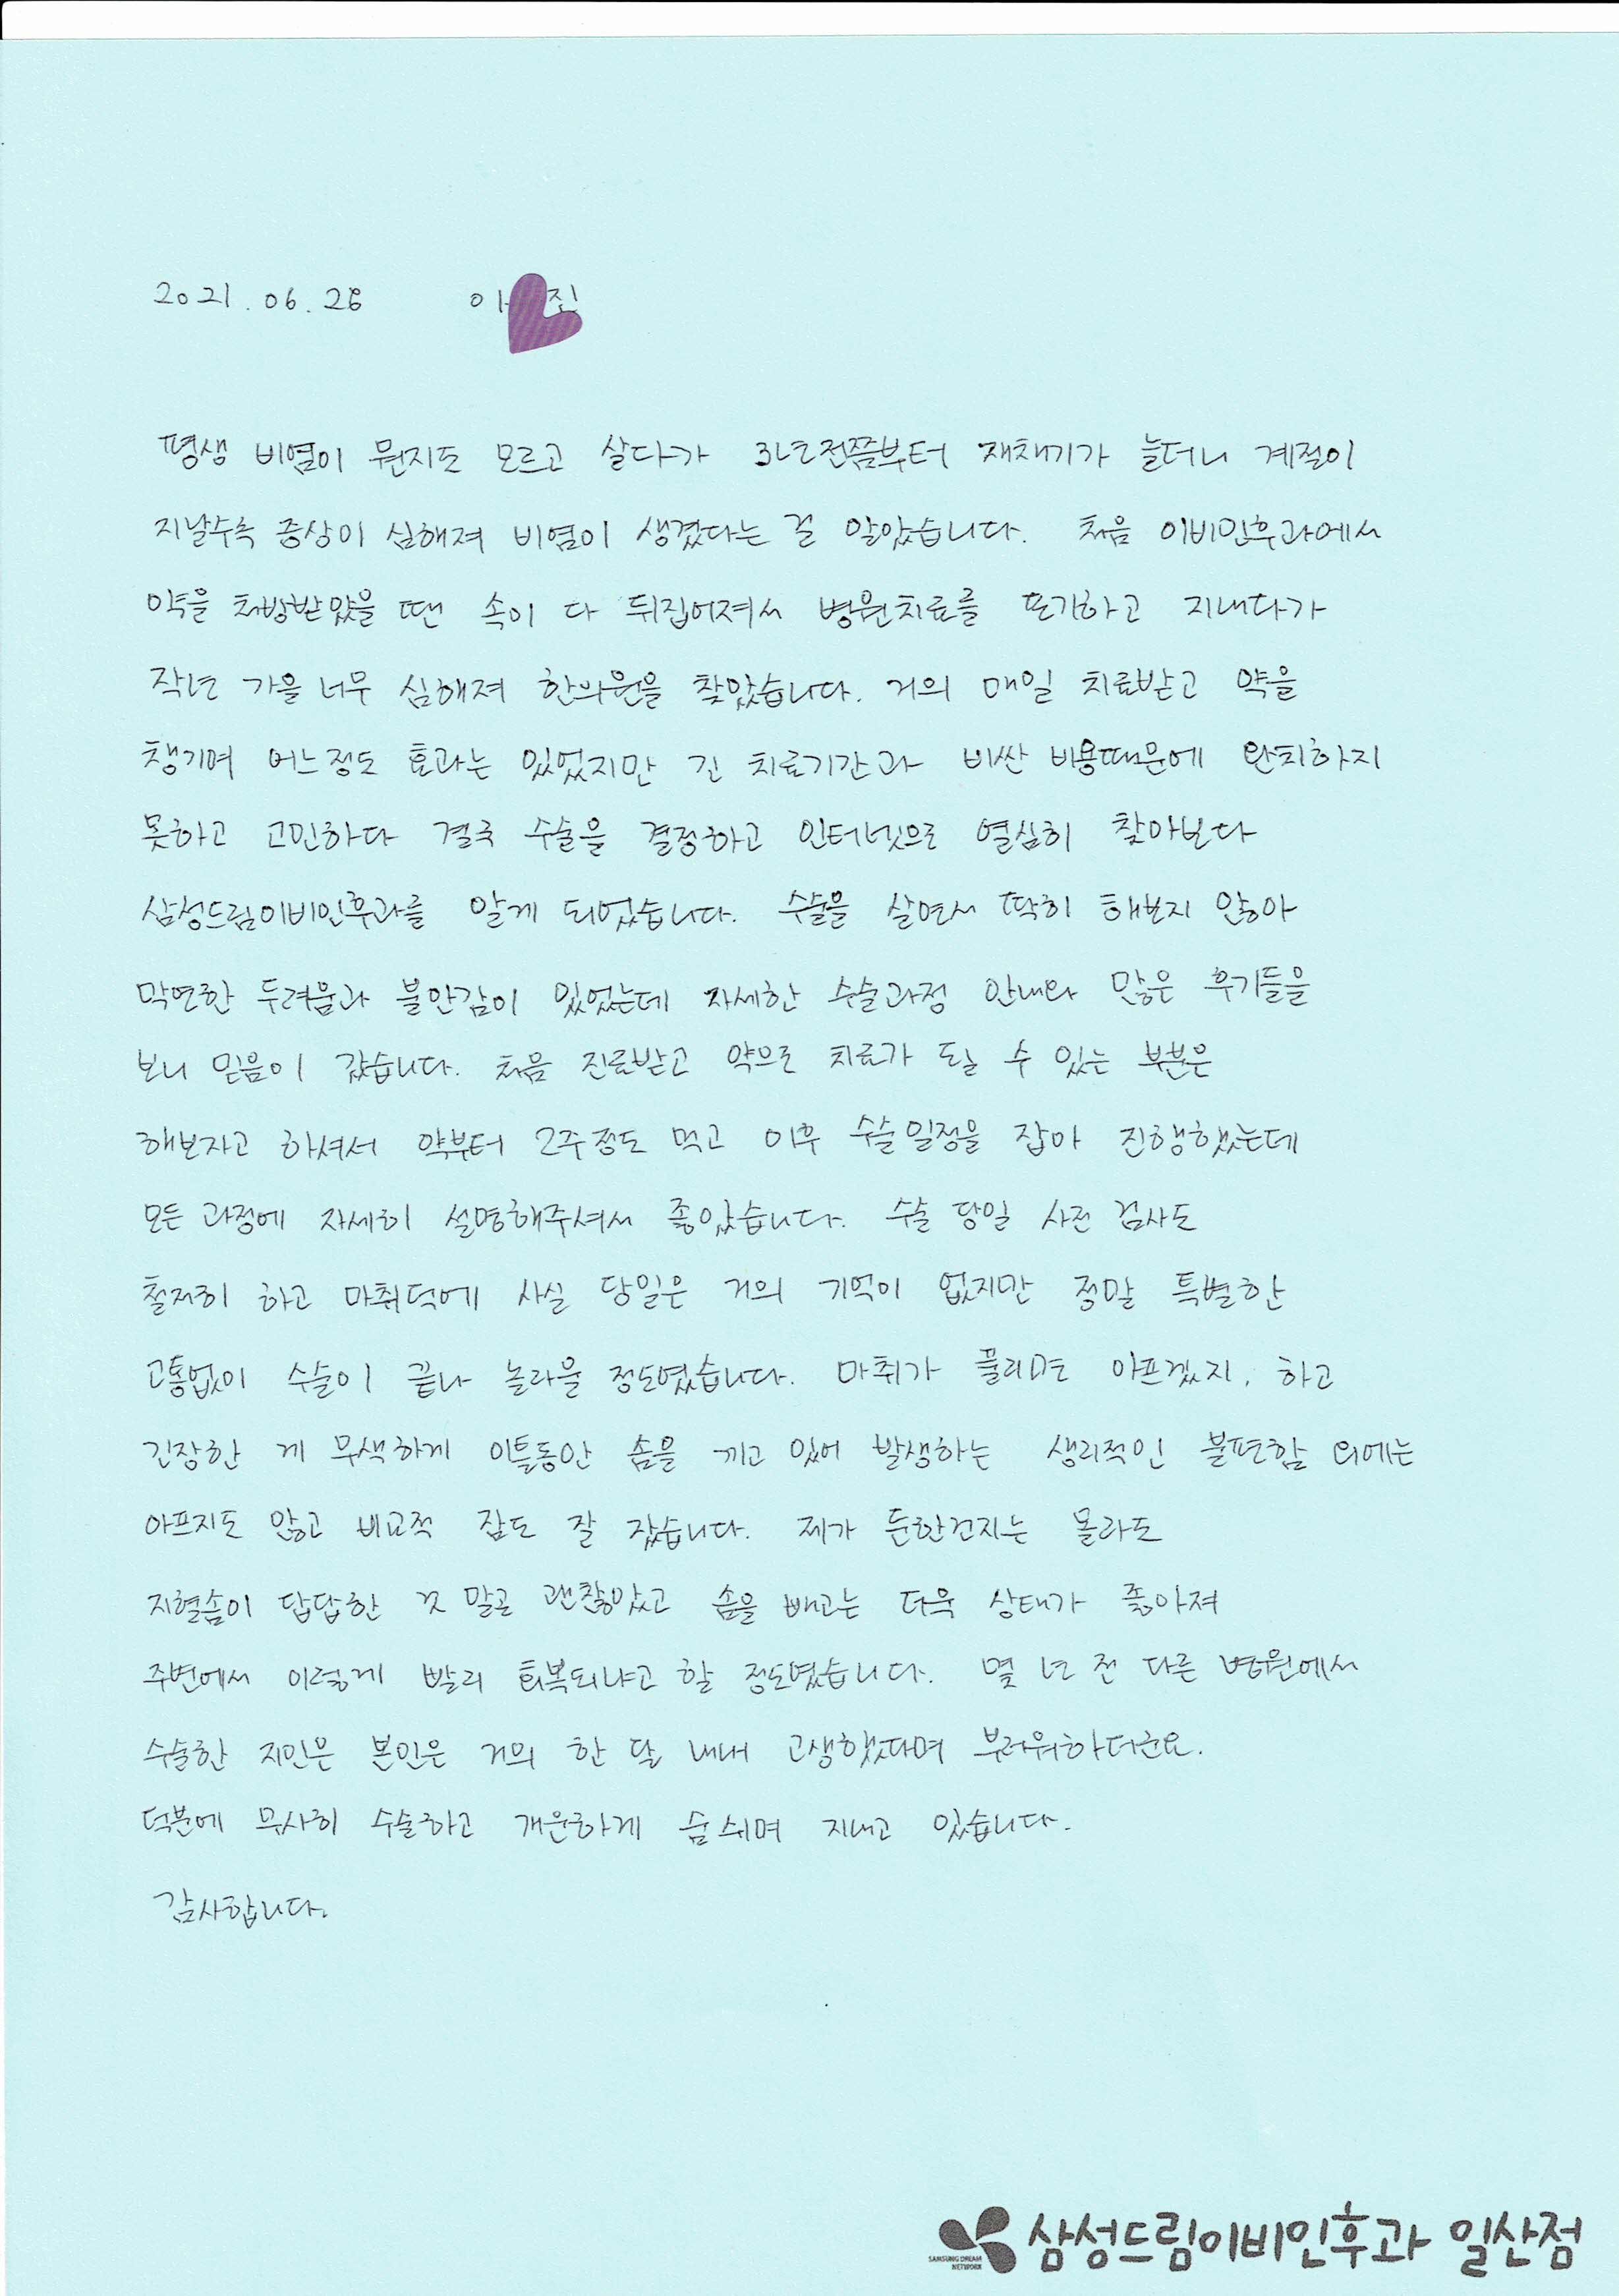 2021.06.28 이 진
평생 비염이 뭔지도 모르고 살다가 3년전쯤부터 재채기가 늘더니 계절이
지날수록 증상이 심해져 비염이 생겼다는 걸 알았습니다. 처음 이비인후과에서
약을 처방받았을 땐 속이 다 뒤집어져서 병원치료를 포기하고 지내다가
작년 가을 너무 심해져 한의원을 찾았습니다. 거의 매일 치료받고 약을
챙기며 어느정도 효과는 있었지만 긴 치료기간과 비싼 비용때문에 완치하지
못하고 고민하다 결국 수술을 결정하고 인터넷으로 열심히 찾아보다
삼성드림이비인후과를 알게 되었습니다. 수술을 살면서 딱히 해보지 않아
막연한 두려움과 불안감이 있었는데 자세한 수술과정 안내와 많은 후기들을
보니 믿음이 갔습니다. 처음 진료받고 약으로 치료가 될 수 있는 부분은
해보자고 하셔서 약부터 2주정도 먹고 이후 수술일정을 잡아 진행했는데
모든 과정에 자세히 설명해주셔서 좋았습니다. 수술 당일 사전 검사도
철저히 하고 마취덕에 사실 당일은 거의 기억이 없지만 정말 특별한
고통없이 수술이 끝나 놀라울 정도였습니다. 마취가 풀리면 아프겠지, 하고
긴장한 게 무색하게 이틀동안 솜을 끼고 있어 발생하는 생리적인 불편함 외에는
아프지도 않고 비교적 잠도 잘 잤습니다. 제가 둔한건지는 몰라도
지혈솜이 답답한 것 말곤 괜찮았고 솜을 빼고는 더욱 상태가 좋아져
주변에서 이렇게 빨리 회복되냐고 할 정도였습니다. 몇 년 전 다른 병원에서
수술한 지인은 본인은 거의 한 달 내내 고생했다며 부러워하더군요.
덕분에 무사히 수술하고 개운하게 숨쉬며 지내고 있습니다.
감사합니다.
SAMSUNG DREAM NETWORK 삼성드림이비인후과 일산점